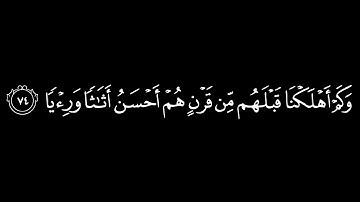 وَكَمْ أَهْلَكْنَا قَبْلَهُم مِّن قَرْنٍ هُمْ أَحْسَنُ أَثَٰثًا وَرِءْيًا ٧٤